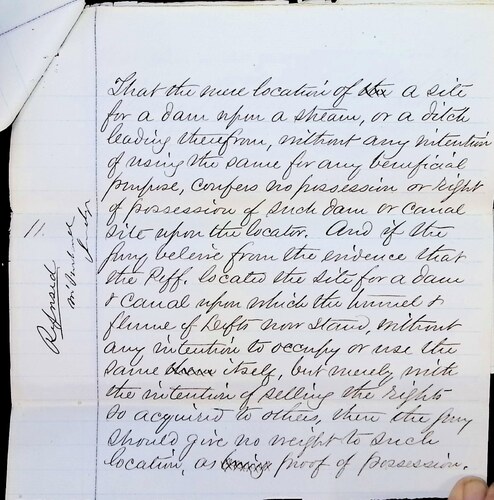 That the mere location of a site
for a dam upon a stream, or a ditch
leading therefrom, without any intention
of using the same for any beneficial
purpose, confers no possession or right
of possession of such dam or canal
site upon the locator. And if the
jury beleive from the evidence that
the Plff. located the site for a dam
& canal upon which the tunnel &
flume of Defts now stand, without
any intention to occupy or use the
same itself, but merely with
the intention of selling the rights
so acquired to others, then the jury
should give no weight to such
location, as proof of possession.
11.
Refused
Judge